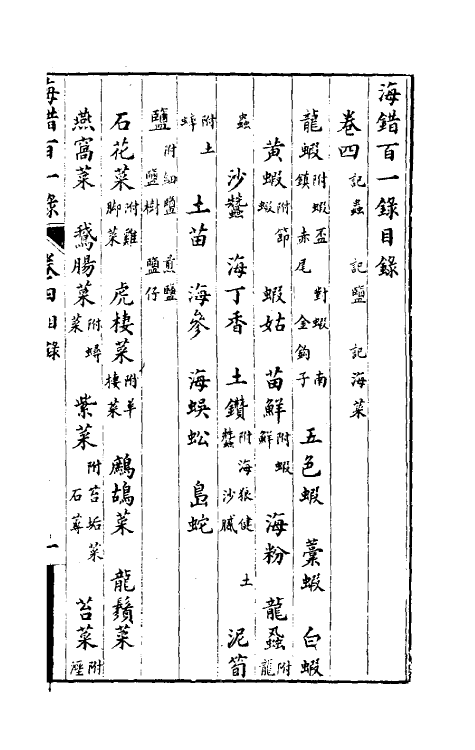 海錯百一錄目錄
卷四 記蟲 記鹽 記海菜
龍蝦 附蝦盃 對蝦 南鎮赤尾 金鈎子 五色蝦 藁蝦 白蝦
黃蝦 附節蝦 蝦姑 苗鮮 附蝦鮮 海粉 龍蝨 附龍
蟲 沙蠶 海丁香 土鑽 附海狼健 土蠶 沙膩 泥筍
附土蚌 土苗 海參 海蜈蚣 島蛇
鹽 附細鹽 煎鹽 鹽樹 鹽仔
石花菜 附雞脚菜 虎棲菜 附羊棲菜 鷓鴣菜 龍鬚菜
燕窩菜 鵝腸菜 附蜯菜 紫菜 附苔垢菜 石蓴 苔菜 附
海錯百一錄 卷四目錄 一